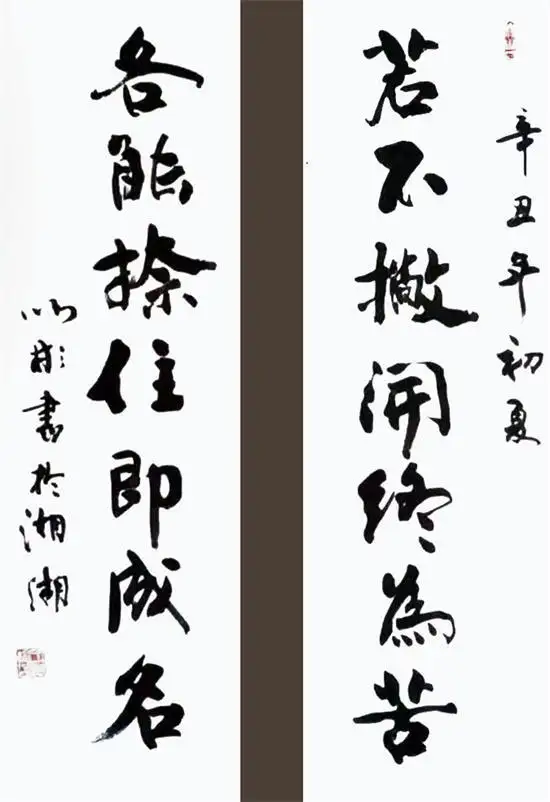 辛丑年初夏
若不撇開終為苦
各能捺住即成名
以彬書於湘湖